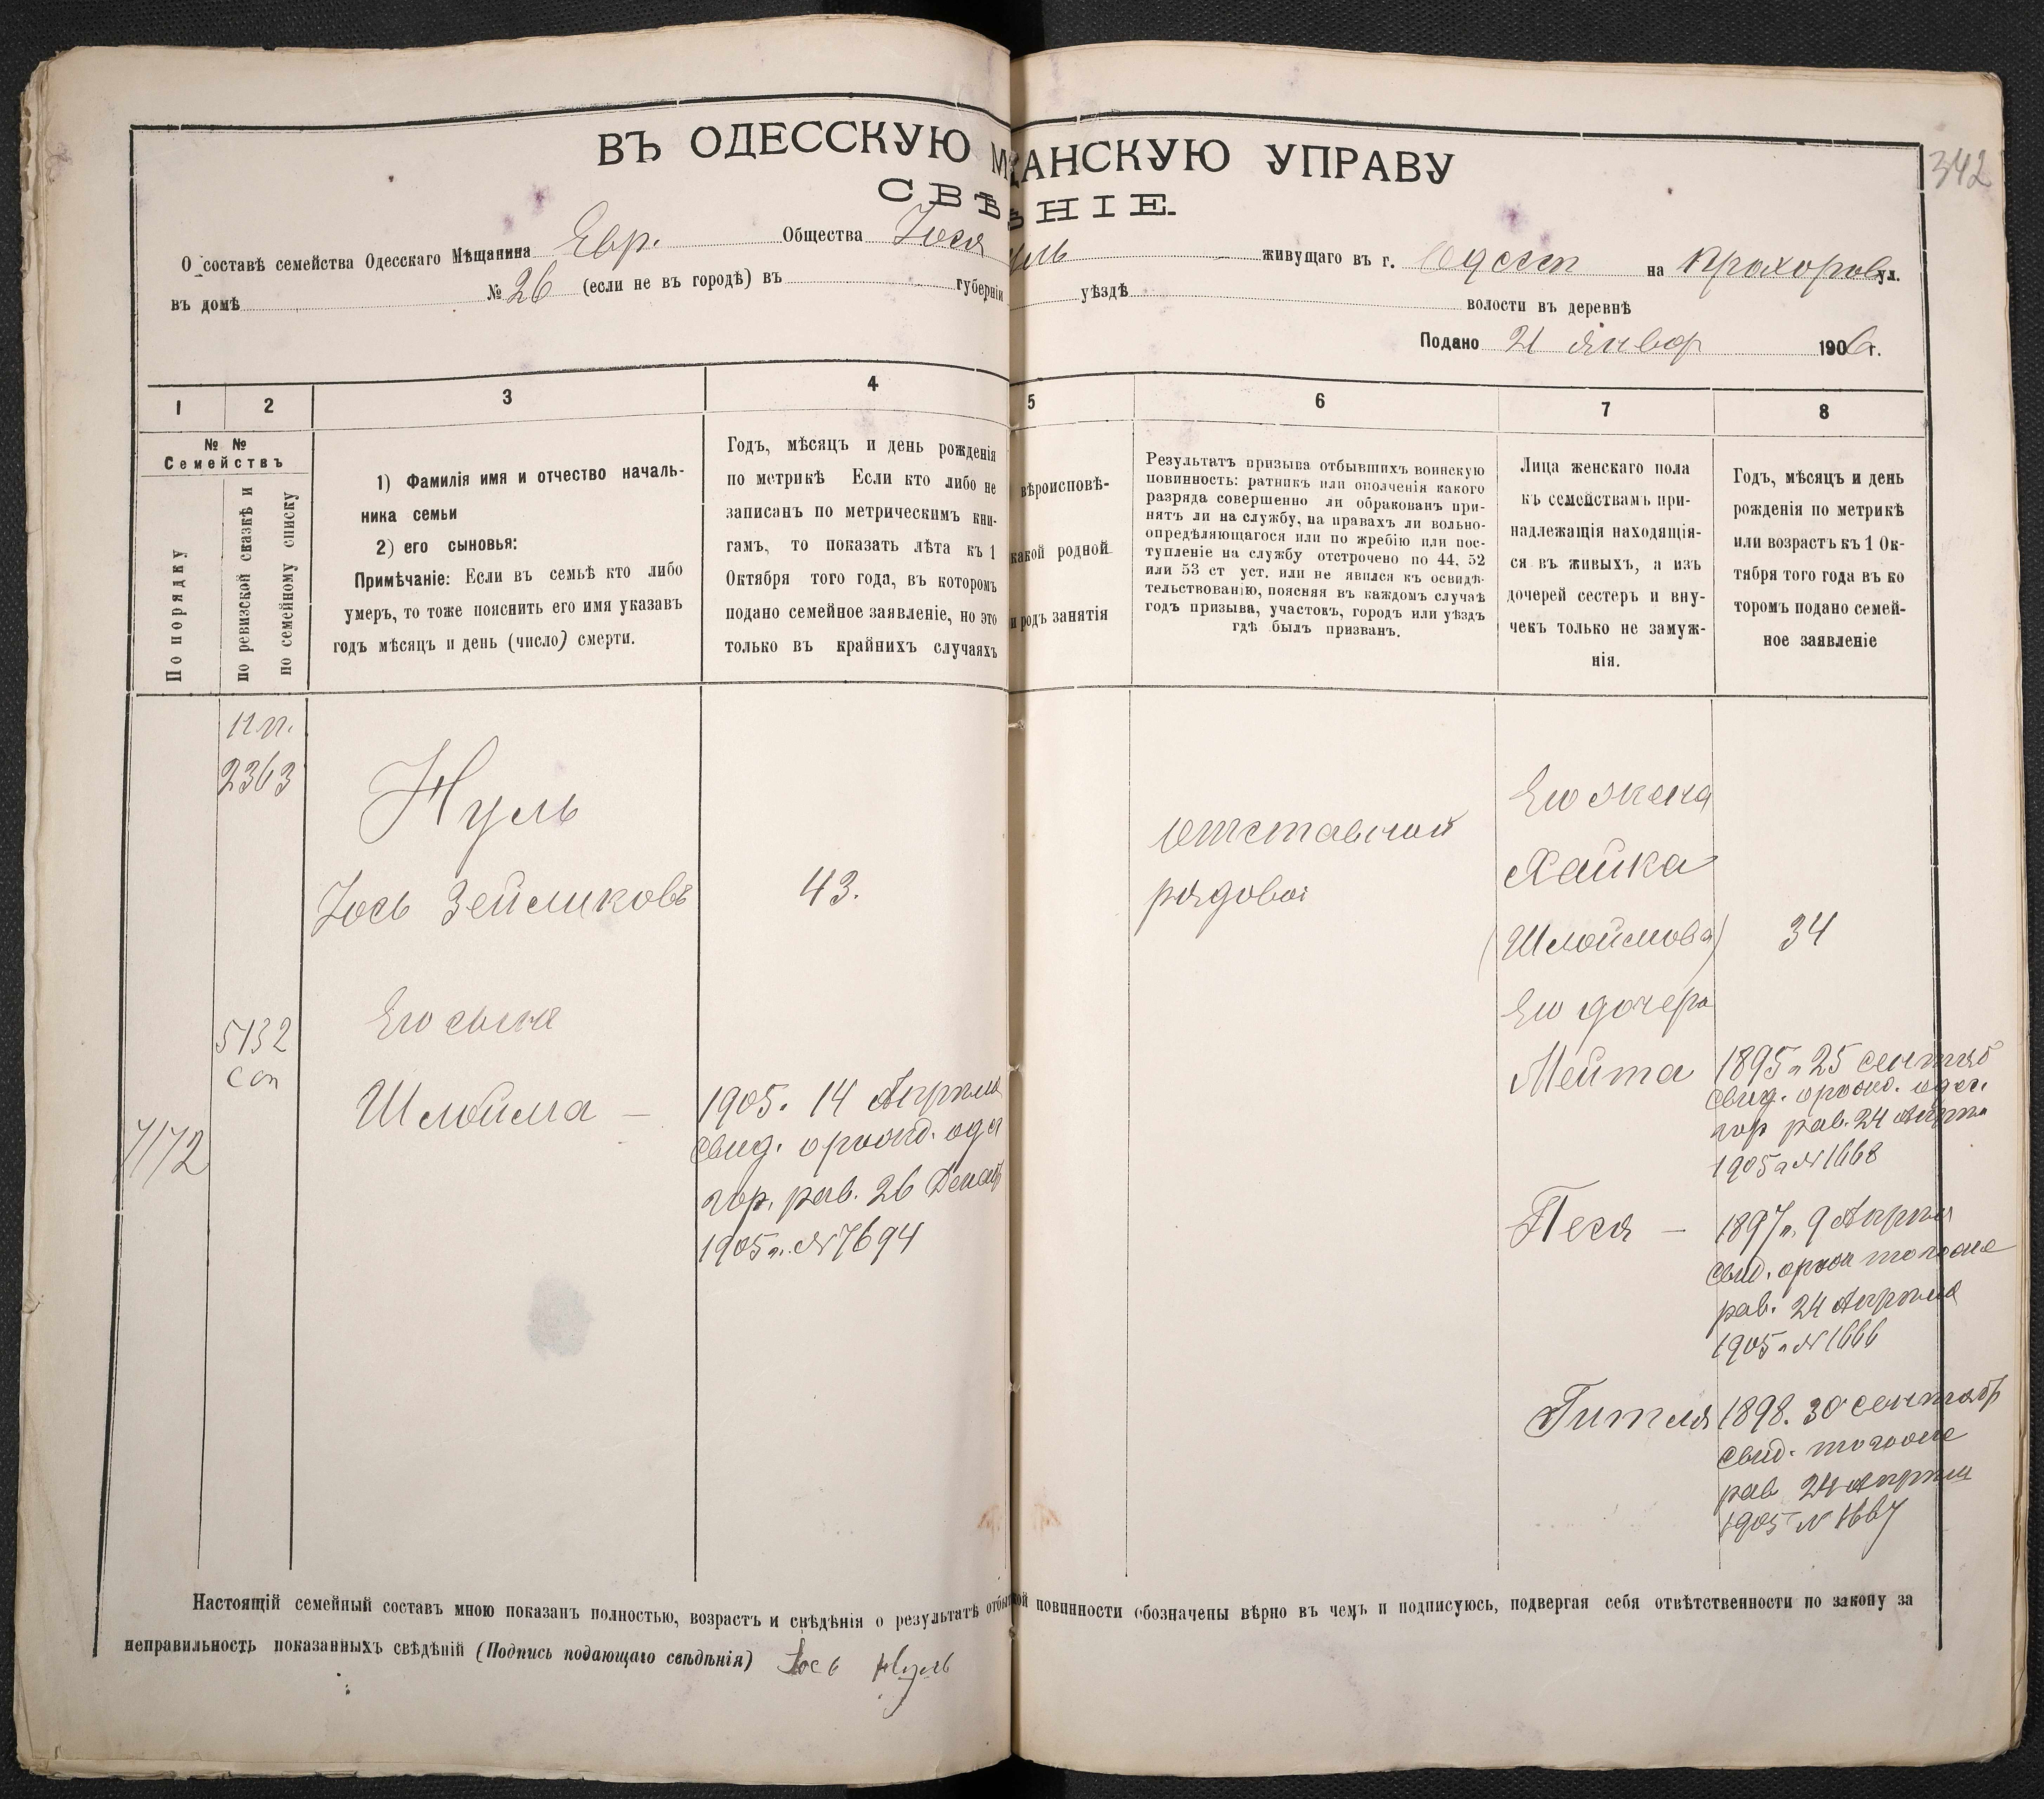 342
ВЪ ОДЕССКУЮ М АНСКУЮ УПРАВУ
СВѢ НІЕ.
О составѣ семейства Одесскаго Мѣщанина Евр. Общества Іося уль живущаго въ г. Одессѣ на Прохоров ул.
въ домѣ № 26 (если не въ городѣ) въ губерніи уѣздѣ волости въ деревнѣ
Подано 21 Январ 1906 г.
1 2 3 4 5 6 7 8
№ №
Семействъ
По порядку
по ревизской сказкѣ и
по семейному списку
1) Фамилія имя и отчество началь-
ника семьи
2) его сыновья:
Примѣчаніе: Если въ семьѣ кто либо
умеръ, то тоже пояснить его имя указавъ
годъ мѣсяцъ и день (число) смерти.
Годъ, мѣсяцъ и день рожденія
по метрикѣ Если кто либо не
записанъ по метрическимъ кни-
гамъ, то показать лѣта къ 1
Октября того года, въ которомъ
подано семейное заявленіе, но это
только въ крайнихъ случаяхъ
вѣроисповѣ-
какой родной
и родъ занятія
Результатъ призыва отбывшихъ воинскую
повинность: ратникъ или ополченія какого
разряда совершенно ли обракованъ при-
нятъ ли на службу, на правахъ ли вольно-
опредѣляющагося или по жребію или пос-
тупленіе на службу отсрочено по 44, 52
или 53 ст уст. или не явился къ освидѣ-
тельствованію, поясняя въ каждомъ случаѣ
годъ призыва, участокъ, городъ или уѣздъ
гдѣ былъ призванъ.
Лица женскаго пола
къ семействамъ при-
надлежащія находящія-
ся въ живыхъ, а изъ
дочерей сестеръ и вну-
чекъ только не замуж-
нія.
Годъ, мѣсяцъ и день
рожденія по метрикѣ
или возрастъ къ 1 Ок-
тября того года въ ко
торомъ подано семей-
ное заявленіе
2363
Нуль
Іось Зейликовъ
43.
Отставной
рядовой
Его жена
Хайка
(Шлоймова)
34
5132
7172
Его сынъ
Шлойма —
1905. 14 Апрѣля
свид. одес
гор. рав. 26 Декаб
1905 г. № 7694
Его дочери
Мейта
1895 г. 25 сентяб
свид. одес.
гор рав. 24 Апрѣл
1905 г № 1668
Песя —
1897 г. 9 Апрѣля
свид. того же
рав. 24 Апрѣля
1905 г № 1666
Гитля
1898. 30 сентябр
свид. того же
рав 24 Апрѣля
1905 № 1667
Настоящій семейный составъ мною показанъ полностью, возрастъ и свѣдѣнія о результатѣ отбы ой повинности обозначены вѣрно въ чемъ и подписуюсь, подвергая себя отвѣтственности по закону за
неправильность показанныхъ свѣдѣній (Подпись подающаго свѣдѣнія) Іось Нуль